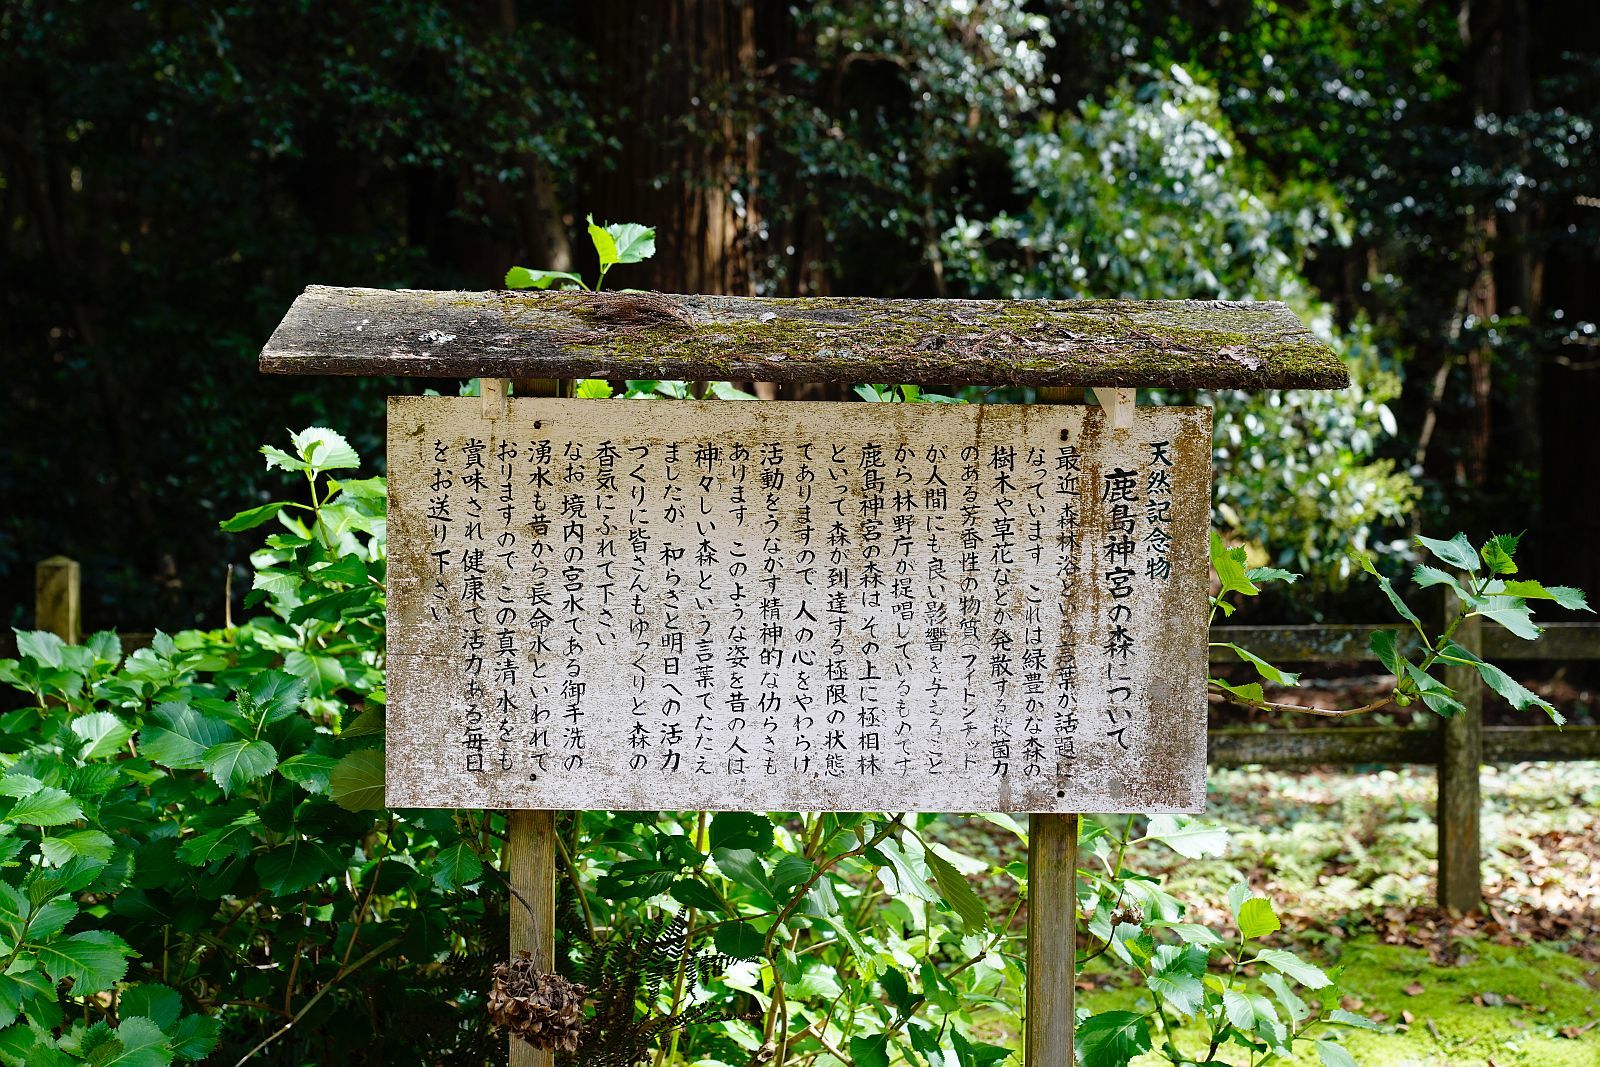 天然記念物
鹿島神宮の森について
最近 森林浴という言葉が話題に
なっています これは緑豊かな森の
樹木や草花などが発散する殺菌力
のある芳香性の物質(フイトンチッド)
が人間にも良い影響を与えること
から 林野庁が提唱しているものです
鹿島神宮の森は その上に極相林
といって 森が到達する極限の状態
でありますので、人の心をやわらげ
活動をうながす精神的な仂らきも
あります このような姿を昔の人は
神々しい森という言葉でたたえ
ましたが、和らぎと明日への活力
づくりに皆さんもゆっくりと森の
香気にふれて下さい
なお 境内の宮水である御手洗の
湧水も昔から長命水といわれて
おりますので この真清水をも
賞味され健康で活力ある毎日
をお送り下さい